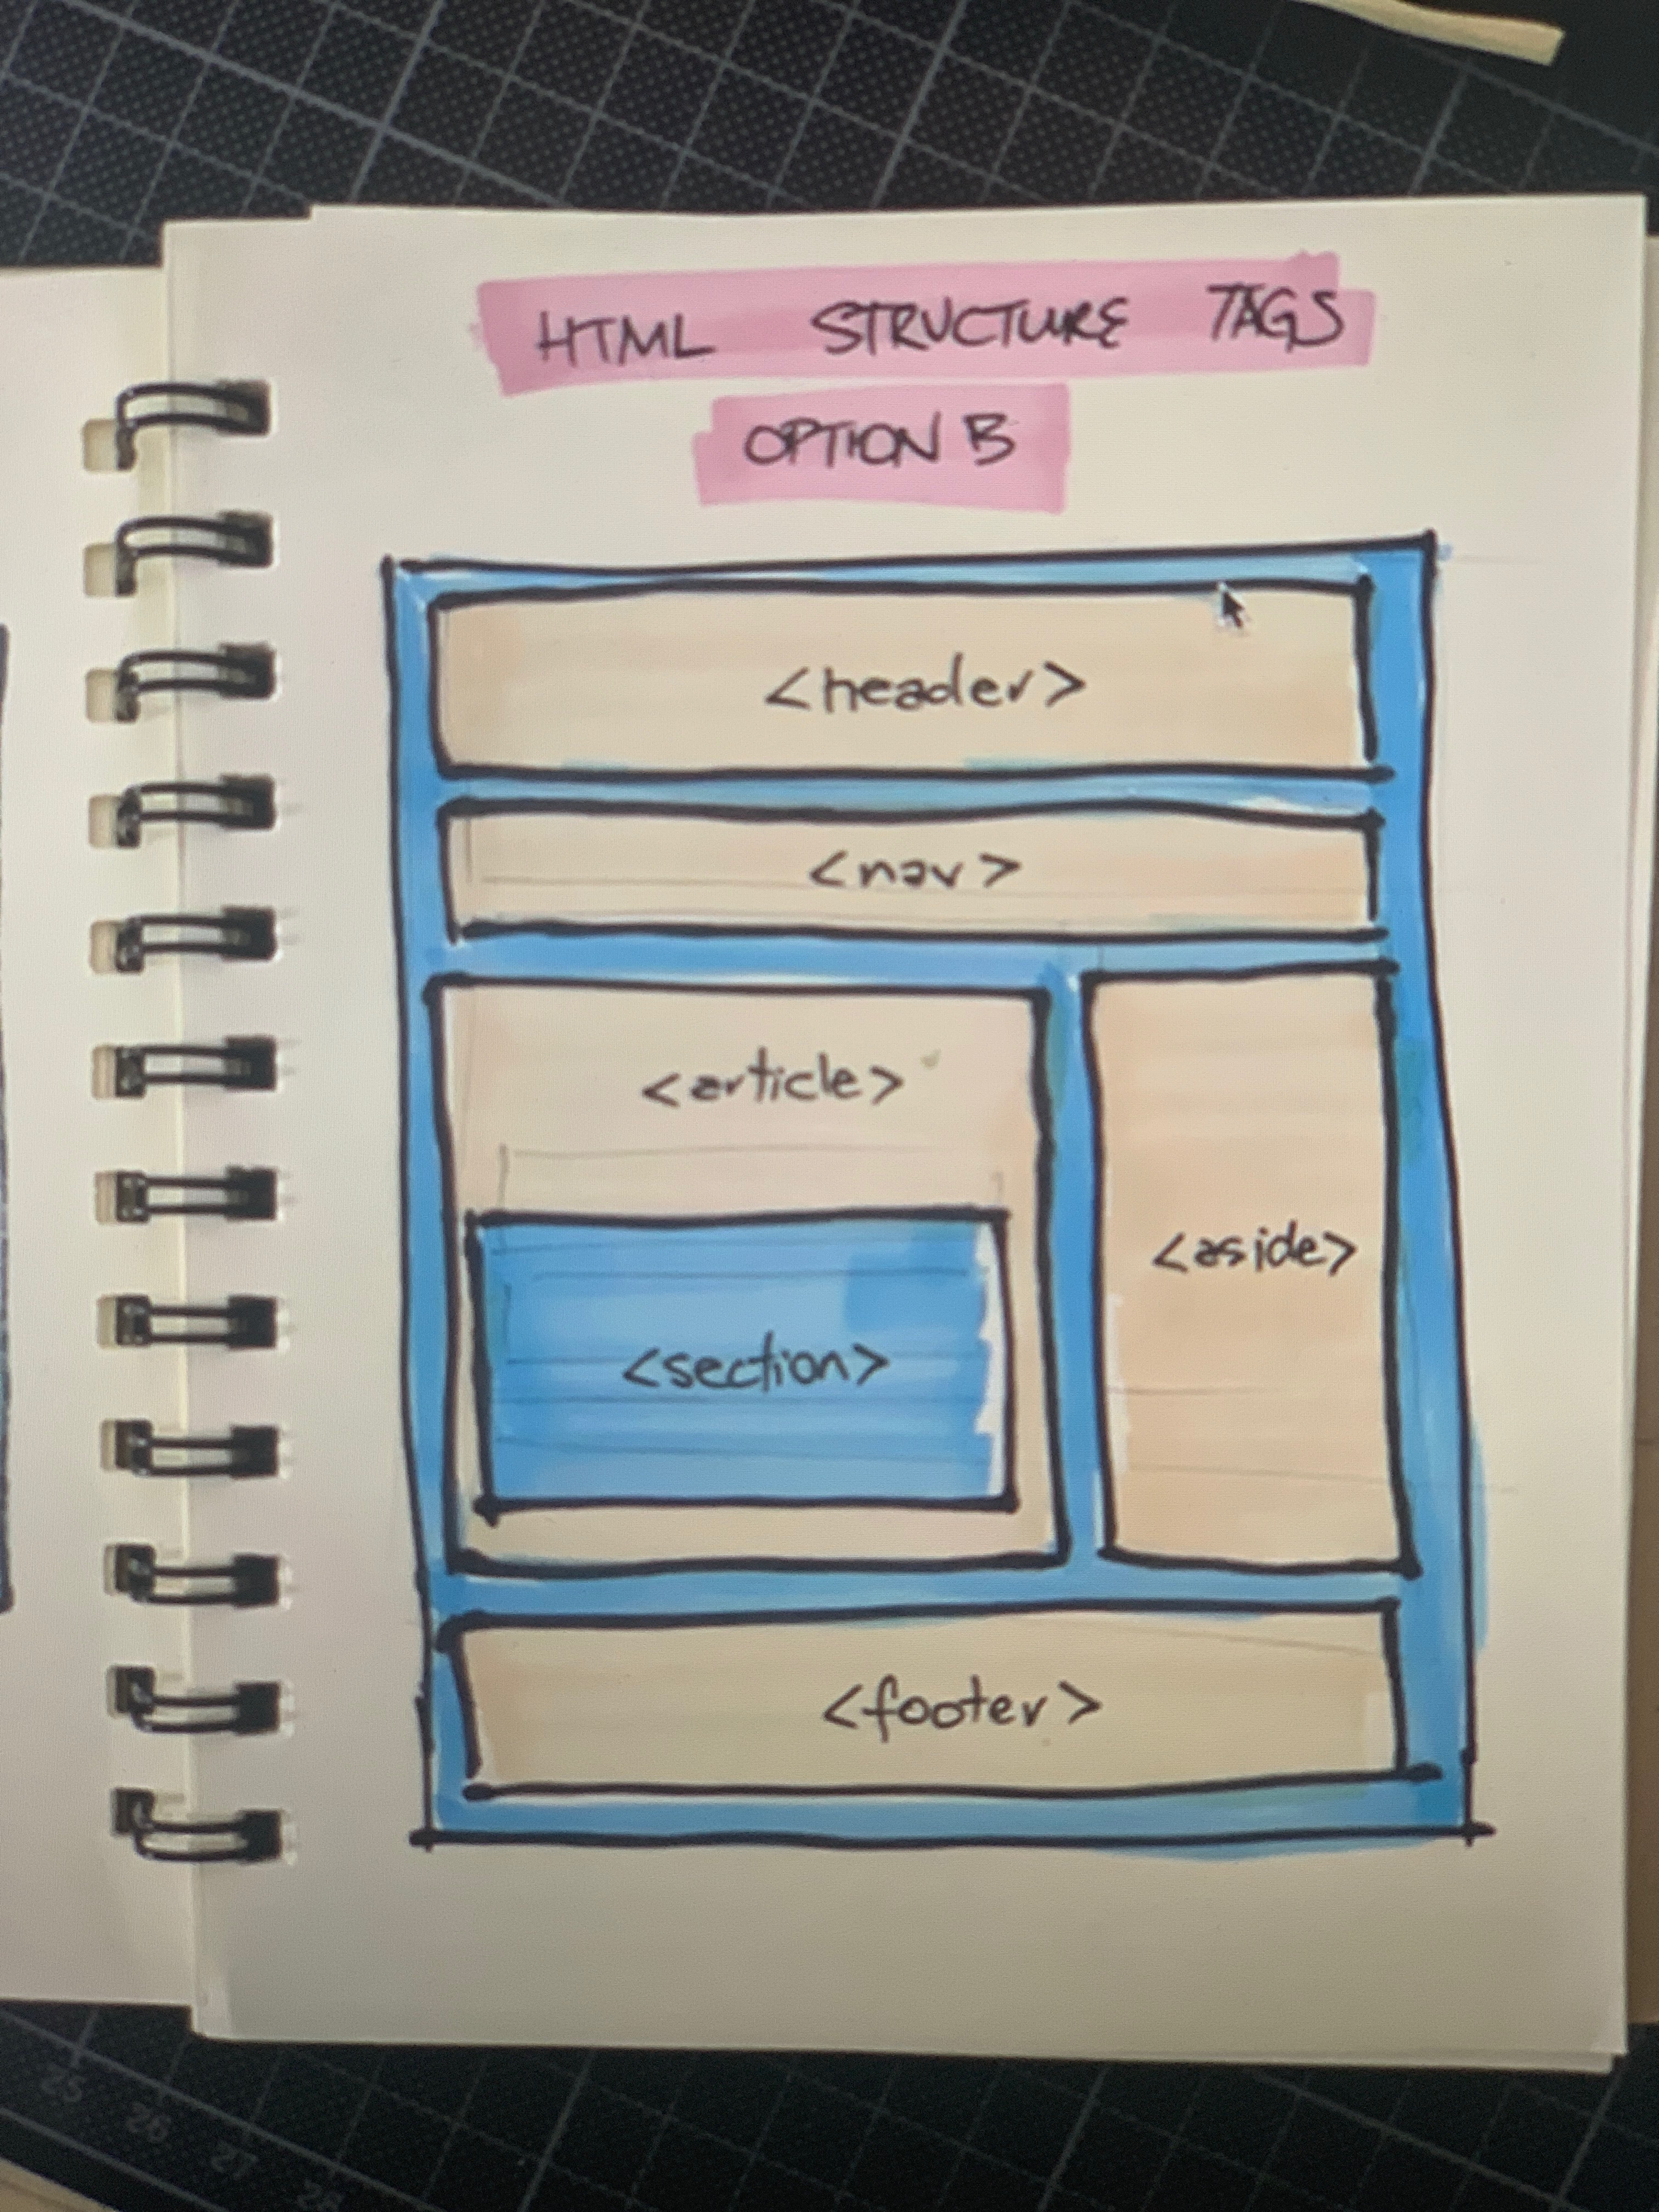 HTML STRUCTURE TAGS
OPTION B
<header>
<nav>
<article>
<aside>
<section>
<footer>
25
26
27
28